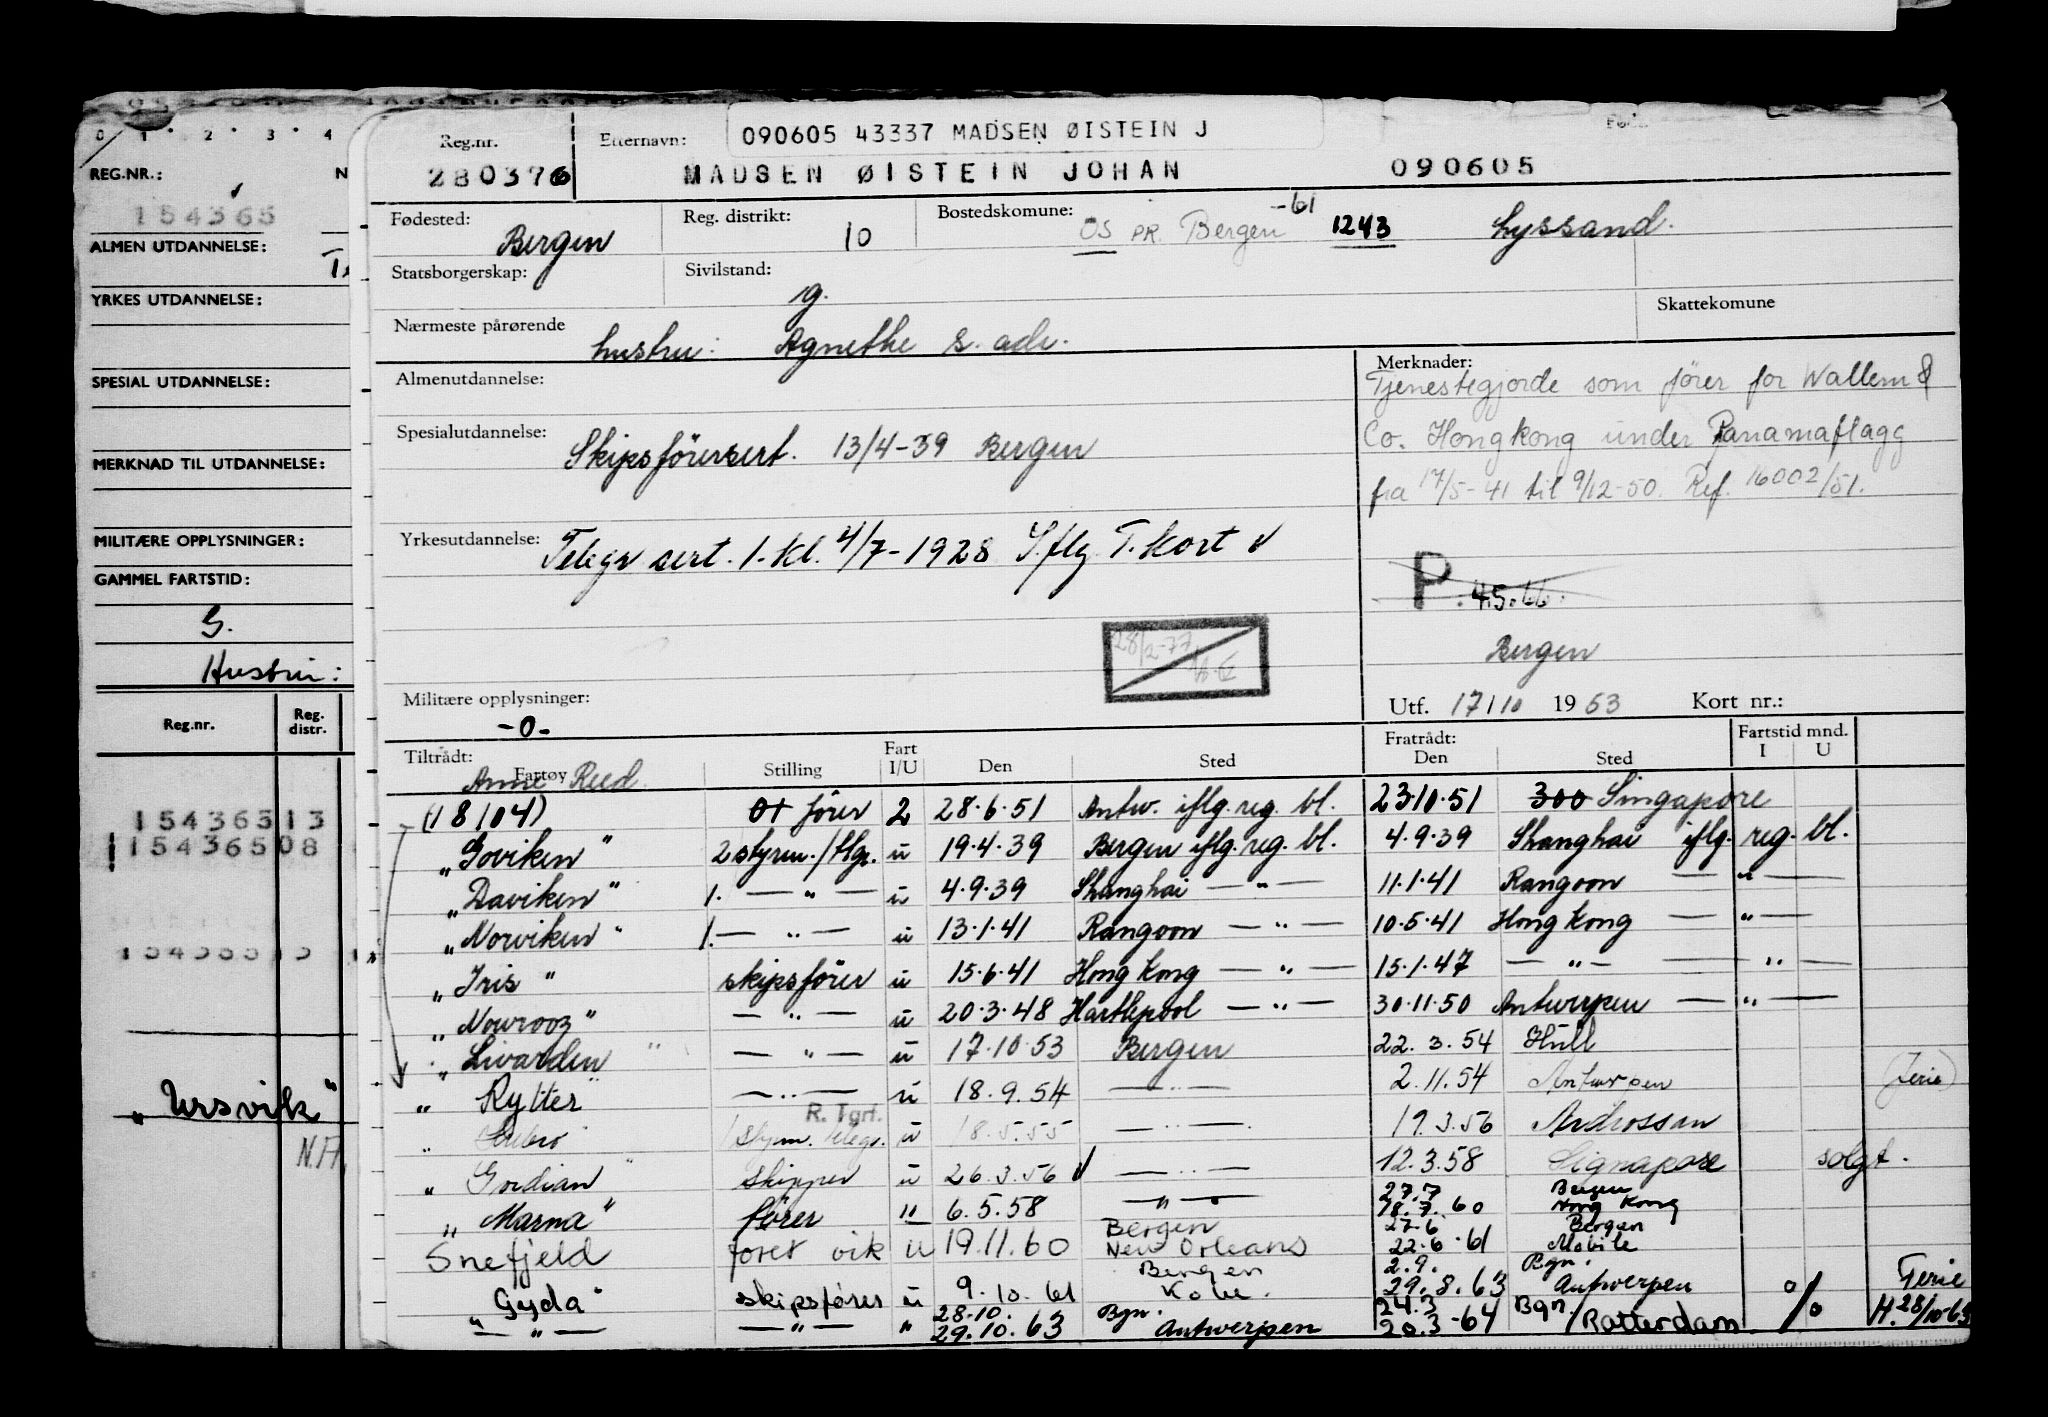 0 1 2 3 4
REG.NR.: N
154365
ALMEN UTDANNELSE:
YRKES UTDANNELSE:
SPESIAL UTDANNELSE:
MERKNAD TIL UTDANNELSE:
MILITÆRE OPPLYSNINGER:
GAMMEL FARTSTID:
G.
Hustru:
Reg.nr. Reg. distr.
154365 13
154365 08
„Ursvik"
N.A.
Reg.nr. Etternavn: 090605 43337 MADSEN ØISTEIN J
280376 MADSEN ØISTEIN JOHAN 090605
Fødested: Reg. distrikt: Bostedskomune: -61
Bergen 10 OS PR. Bergen 1243 Lyssand.
Statsborgerskap: Sivilstand: g. Skattekomune
Nærmeste pårørende hustru: Agnethe s. adr.
Almenutdannelse:
Spesialutdannelse: Skipsförersert. 13/4-39 Bergen
Yrkesutdannelse: Telegr sert. 1. kl. 4/7-1928 I.flg T. kort
Merknader:
Tjenestegjorde som förer for Wallem &
Co. Hongkong under Panamaflagg
fra 17/5-41 til 9/12-50. Ref. 16002/51.
P. 4.5.66.
Bergen
28/2-77
Militære opplysninger: -0-
Utf. 17/10 1953 Kort nr.:
Tiltrådt: Fartøy Stilling Fart I/U Den Sted Fratrådt: Den Sted Fartstid mnd. I U
Anne Reed
(18104) förer 2 28.6.51 Antw. iflg. reg. bl. 23.10.51 300 Singapore
„Goviken" 2 styrm./tlgr. u 19.4.39 Bergen iflg. reg. bl. 4.9.39 Shanghai iflg. reg. bl.
„Daviken" 1. — „ — u 4.9.39 Shanghai — „ — 11.1.41 Rangoon — „ —
„Norviken" 1. — „ — u 13.1.41 Rangoon — „ — 10.5.41 Hong Kong — „ —
„Iris" skipsförer u 15.6.41 Hong Kong — „ — 15.1.47 — „ — — „ —
„Nowrooz" — „ — u 20.3.48 Harthepool — „ — 30.11.50 Antwerpen — „ —
„Livarden" — „ — u 17.10.53 Bergen 22.3.54 Hull
„Rytter" — „ — u 18.9.54 — „ — 2.11.54 Antwerpen (Ferie)
R. Tgrf.
1 styrm. telegr. u 18.5.55 — „ — 19.3.56 Ardrossan
„Gordian" skipper u 26.3.56 — „ — 12.3.58 Signapore solgt.
„Marna" fører " 6.5.58 — „ — 27.7 Bergen
18.7.60 Hong Kong
Snefjeld føret vik u 19.11.60 Bergen New Orleans 27.6 Bergen
22.6.61 Mobile
„Gyda" skipsfører u 9.10.61 Bergen Kobe. 2.9. Bgn.
29.8.63 Antwerpen Ferie
— „ — — „ — " 28.10. Bgn. 24.3 Bgn/
29.10.63 Antwerpen 20.3-64 Rotterdam % H. 28/10-63